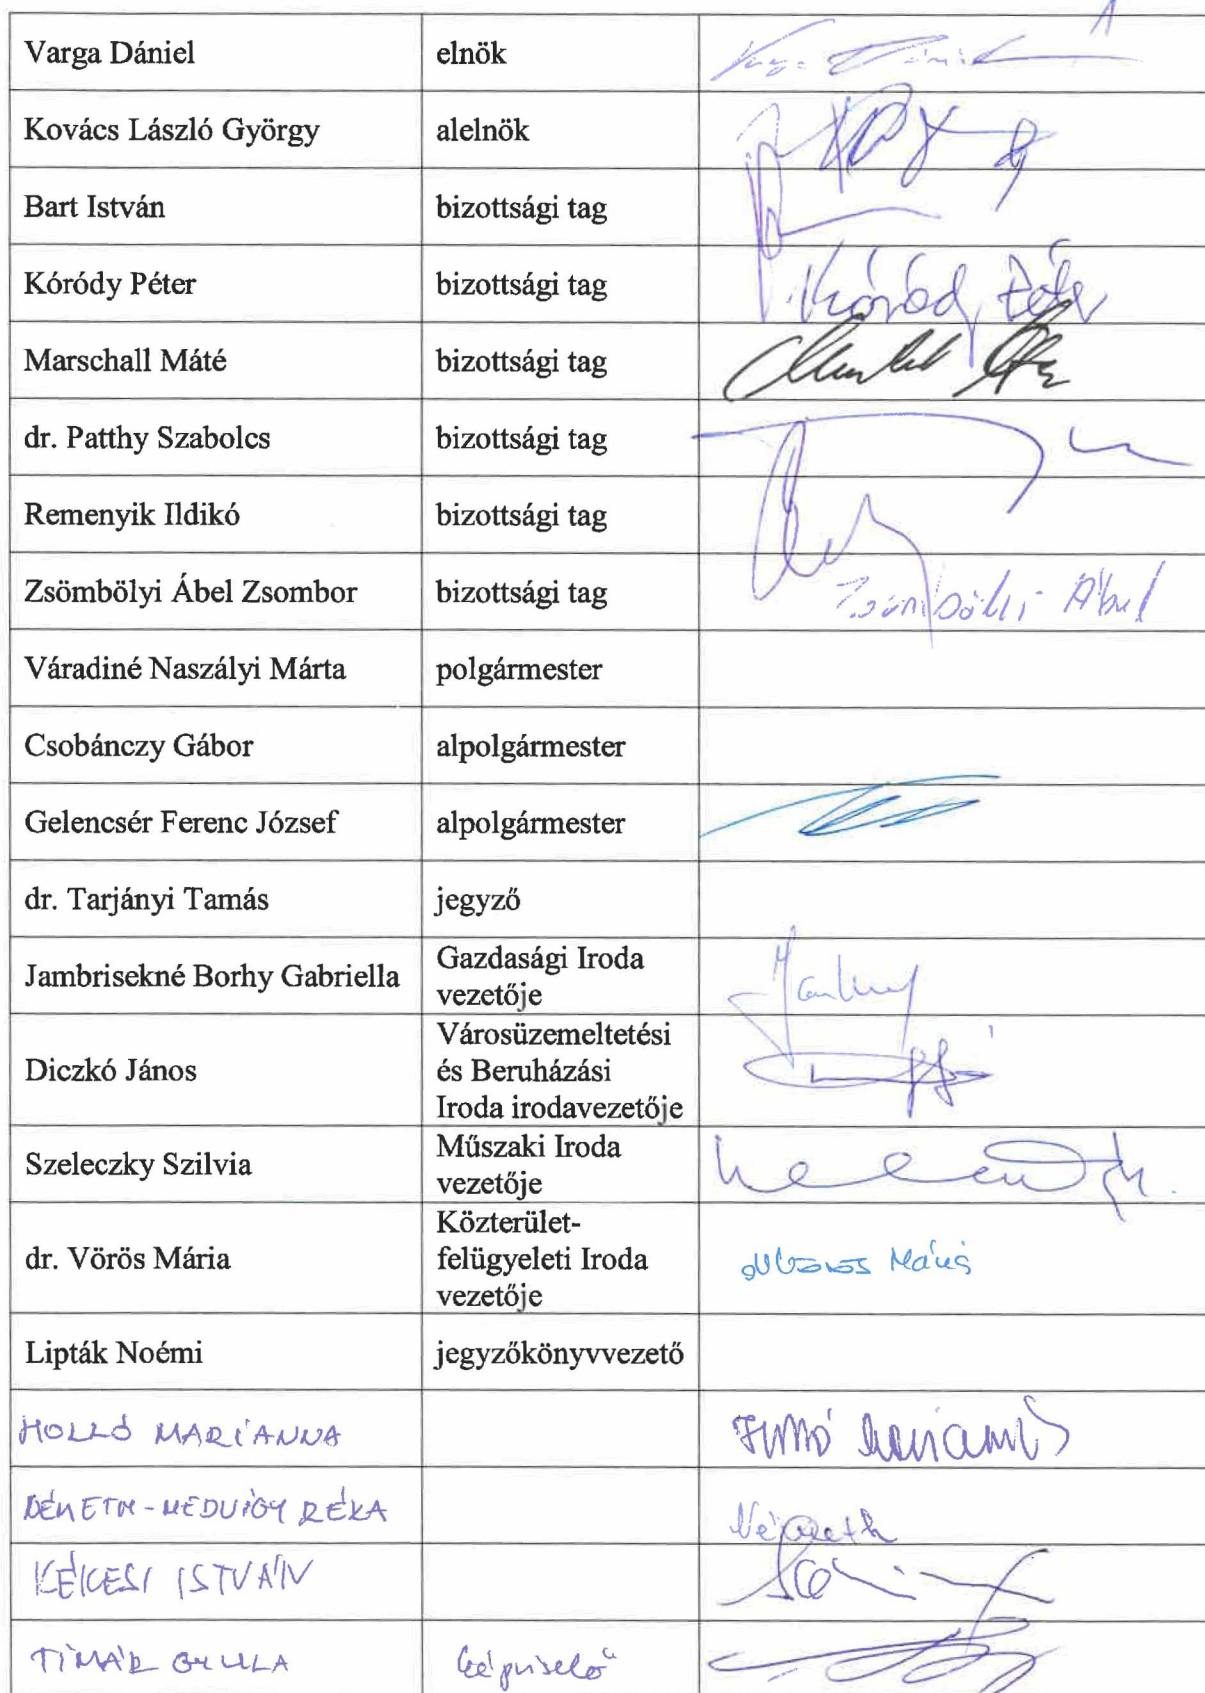 Varga Dániel elnök
Kovács László György alelnök
Bart István bizottsági tag
Kóródy Péter bizottsági tag
Marschall Máté bizottsági tag
dr. Patthy Szabolcs bizottsági tag
Remenyik Ildikó bizottsági tag
Zsömbölyi Ábel Zsombor bizottsági tag
Zsömbölyi Ábel
Váradiné Naszályi Márta polgármester
Csobánczy Gábor alpolgármester
Gelencsér Ferenc József alpolgármester
dr. Tarjányi Tamás jegyző
Jambrisekné Borhy Gabriella
Gazdasági Iroda
vezetője
Diczkó János
Városüzemeltetési
és Beruházási
Iroda irodavezetője
Szeleczky Szilvia
Műszaki Iroda
vezetője
dr. Vörös Mária
Közterület-
felügyeleti Iroda
vezetője
Lipták Noémi jegyzőkönyvvezető
HOLLÓ MARIANNA Holló Marianna
NÉMETH-MEDVIGY RÉKA
Németh
KÉKESI ISTVÁN
TÍMÁR GYULA képviselő